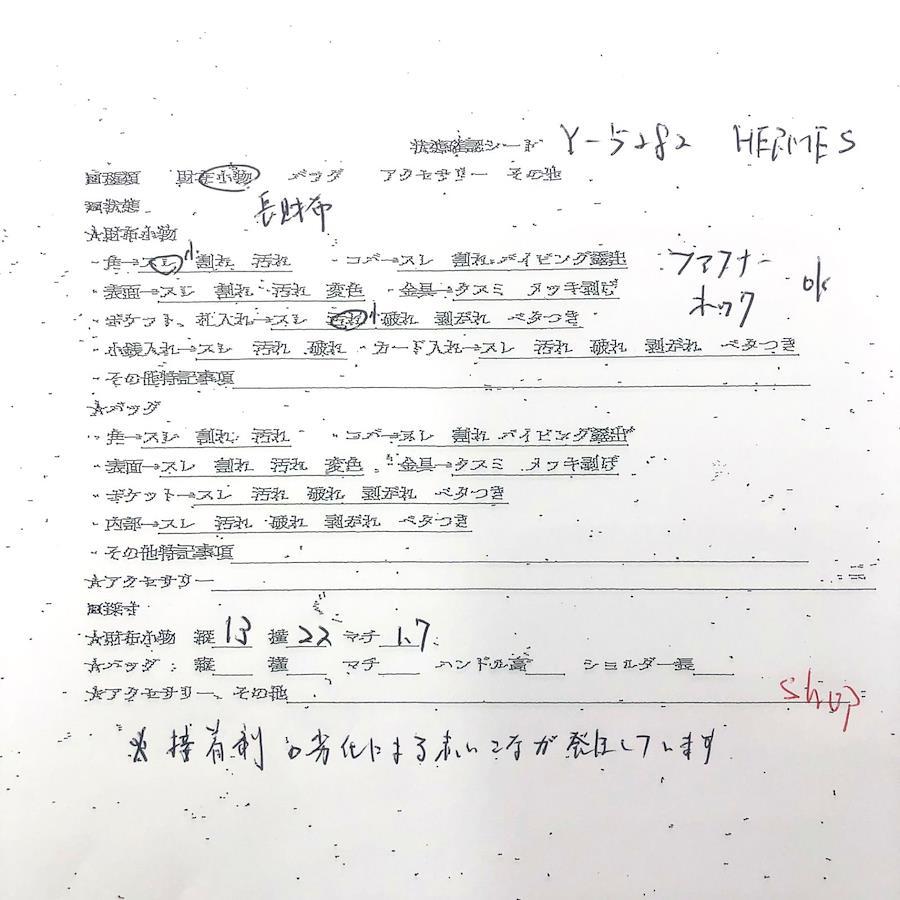 状態確認シート Y-5282 HERMES
■種類 財布小物 バッグ アクセサリー その他
■状態 長財布
★財布小物
・角→スレ小 割れ 汚れ ・コバ→スレ 割れ パイピング露出 ファスナー
・表面→スレ 割れ 汚れ 変色 ・金具→クスミ メッキ剥げ ホック ok
・ポケット、札入れ→スレ 汚れ小 破れ 剥がれ ベタつき
・小銭入れ→スレ 汚れ 破れ ・カード入れ→スレ 汚れ 破れ 剥がれ ベタつき
・その他特記事項
★バッグ
・角→スレ 割れ 汚れ ・コバ→スレ 割れ パイピング露出
・表面→スレ 割れ 汚れ 変色 ・金具→クスミ メッキ剥げ
・ポケット→スレ 汚れ 破れ 剥がれ ベタつき
・内部→スレ 汚れ 破れ 剥がれ ベタつき
・その他特記事項
★アクセサリー
■採寸
★財布小物 縦13 横22 マチ1.7
★バッグ:縦 横 マチ ハンドル高 ショルダー長
★アクセサリー、その他 shop
※接着剤の劣化による赤いこなが発生しています